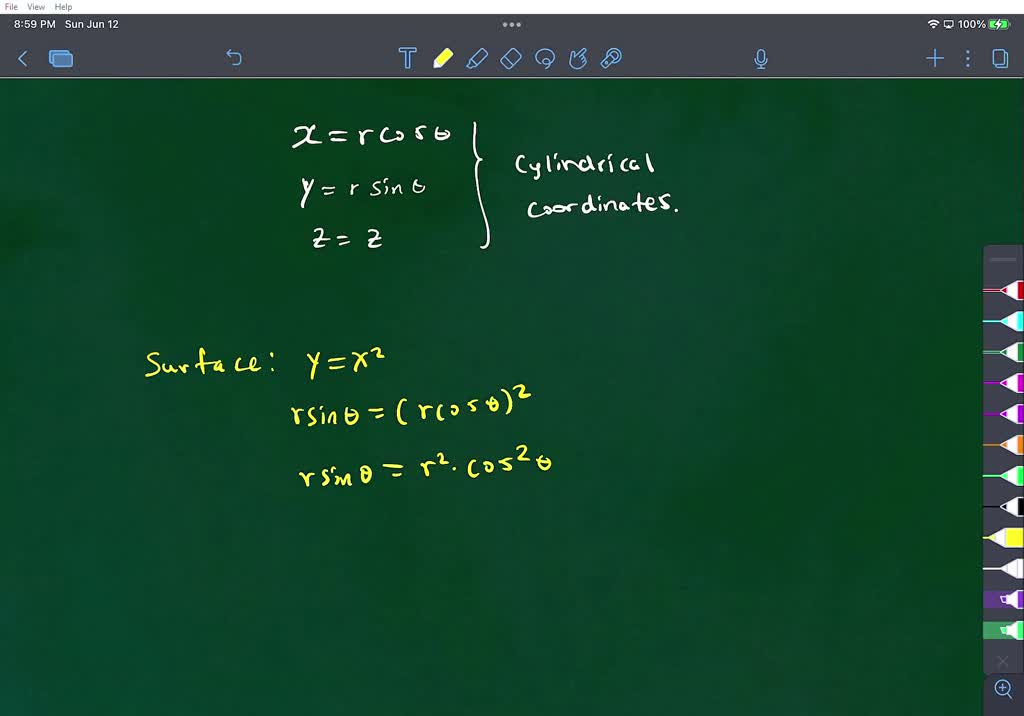 File View Help
8:59 PM Sun Jun 12
100%
x = r cos θ
y = r sin θ
z = z
Cylindrical
coordinates.
Surface: y = x²
r sin θ = (r cos θ)²
r sin θ = r² · cos² θ